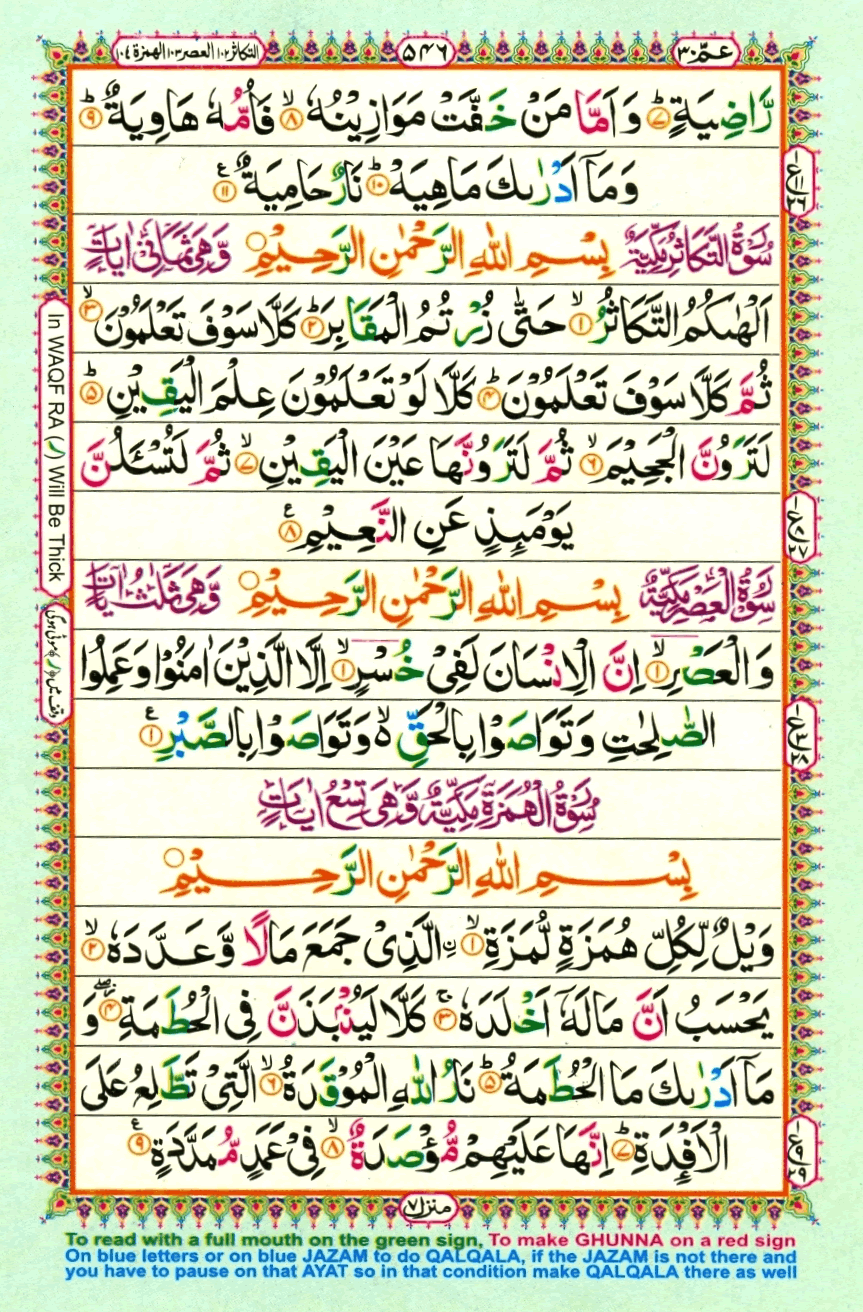 عمّ ٣٠
٥٤٦
التكاثر ١٠٢ العصر ١٠٣ الهمزة ١٠٤
رَّاضِيَةٍ ؕ﴿٧﴾ وَ اَمَّا مَنْ خَفَّتْ مَوَازِيْنُهٗ ۙ﴿٨﴾ فَاُمُّهٗ هَاوِيَةٌ ؕ﴿٩﴾
وَمَاۤ اَدْرٰىكَ مَاهِيَهْ ؕ﴿١٠﴾ نَارٌ حَامِيَةٌ ۧ﴿١١﴾
سُوْرَةُ التَّكَاثُرِ مَكِّيَّةٌ بِسْمِ اللهِ الرَّحْمٰنِ الرَّحِيْمِ وَّهِىَ ثَمَانِىْ اٰيَاتٍ
اَلْهٰىكُمُ التَّكَاثُرُ ۙ﴿١﴾ حَتّٰى زُرْتُمُ الْمَقَابِرَ ؕ﴿٢﴾ كَلَّا سَوْفَ تَعْلَمُوْنَ ۙ﴿٣﴾
ثُمَّ كَلَّا سَوْفَ تَعْلَمُوْنَ ؕ﴿٤﴾ كَلَّا لَوْ تَعْلَمُوْنَ عِلْمَ الْيَقِيْنِ ؕ﴿٥﴾
لَتَرَوُنَّ الْجَحِيْمَ ۙ﴿٦﴾ ثُمَّ لَتَرَوُنَّهَا عَيْنَ الْيَقِيْنِ ۙ﴿٧﴾ ثُمَّ لَتُسْـَٔلُنَّ
يَوْمَىِٕذٍ عَنِ النَّعِيْمِ ۧ﴿٨﴾
سُوْرَةُ الْعَصْرِ مَكِّيَّةٌ بِسْمِ اللهِ الرَّحْمٰنِ الرَّحِيْمِ وَّهِىَ ثَلٰثُ اٰيَاتٍ
وَالْعَصْرِ ۙ﴿١﴾ اِنَّ الْاِنْسَانَ لَفِىْ خُسْرٍ ۙ﴿١﴾ اِلَّا الَّذِيْنَ اٰمَنُوْا وَعَمِلُوا
الصّٰلِحٰتِ وَتَوَاصَوْا بِالْحَقِّ ۙ۬ وَتَوَاصَوْا بِالصَّبْرِ ۧ﴿١﴾
سُوْرَةُ الْهُمَزَةِ مَكِّيَّةٌ وَّهِىَ تِسْعُ اٰيَاتٍ
بِسْمِ اللهِ الرَّحْمٰنِ الرَّحِيْمِ
وَيْلٌ لِّكُلِّ هُمَزَةٍ لُّمَزَةِ ۙ﴿١﴾ نِ الَّذِىْ جَمَعَ مَالًا وَّعَدَّدَهٗ ۙ﴿٢﴾
يَحْسَبُ اَنَّ مَالَهٗۤ اَخْلَدَهٗ ۚ﴿٣﴾ كَلَّا لَيُنْۢبَذَنَّ فِى الْحُطَمَةِ ۖ﴿٤﴾ وَ
مَاۤ اَدْرٰىكَ مَا الْحُطَمَةُ ؕ﴿٥﴾ نَارُ اللهِ الْمُوْقَدَةُ ۙ﴿٦﴾ الَّتِىْ تَطَّلِعُ عَلَى
الْاَفْـِٕدَةِ ؕ﴿٧﴾ اِنَّهَا عَلَيْهِمْ مُّؤْصَدَةٌ ۙ﴿٨﴾ فِىْ عَمَدٍ مُّمَدَّدَةٍ ۧ﴿٩﴾
منزل ٧
In WAQF RA (ر) Will Be Thick
To read with a full mouth on the green sign, To make GHUNNA on a red sign
On blue letters or on blue JAZAM to do QALQALA, if the JAZAM is not there and
you have to pause on that AYAT so in that condition make QALQALA there as well